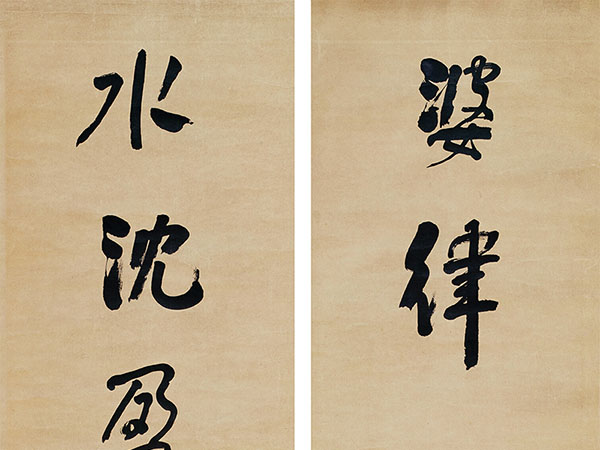 婆律
水沈